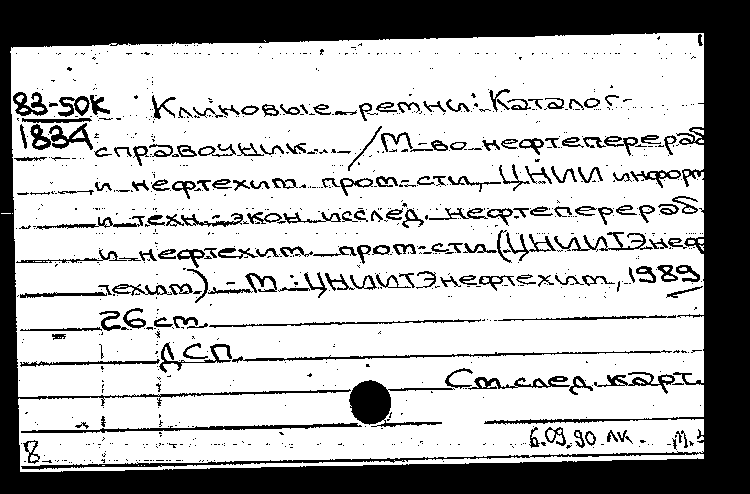 83-50К Клиновые ремни: Каталог-
1834 справочник... / М-во нефтеперераб
и нефтехим. пром-сти, ЦНИИ информ
и техн.-экон. исслед. нефтеперераб.
и нефтехим. пром-сти (ЦНИИТЭнеф
техим). - М.: ЦНИИТЭнефтехим, 1989
26 см.
ДСП.
См. след. карт.
8 6.09.90 ЛК. М.